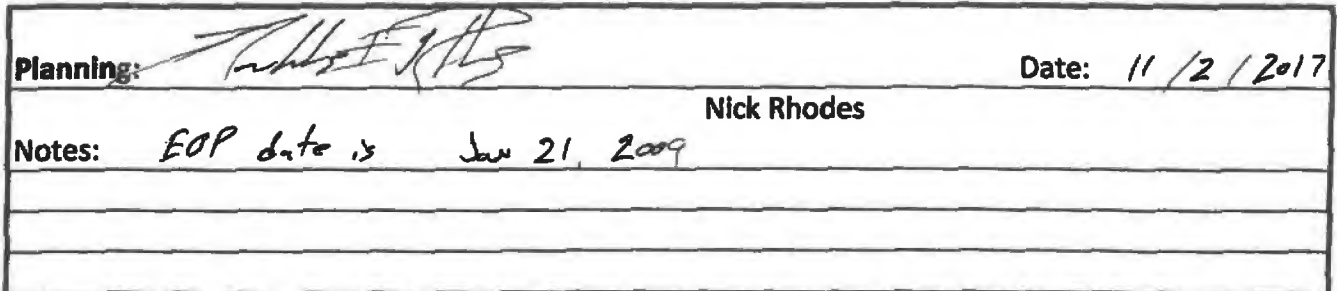 Planning: Date: 11/2/2017
Nick Rhodes
Notes: EOP date is Jan 21, 2009